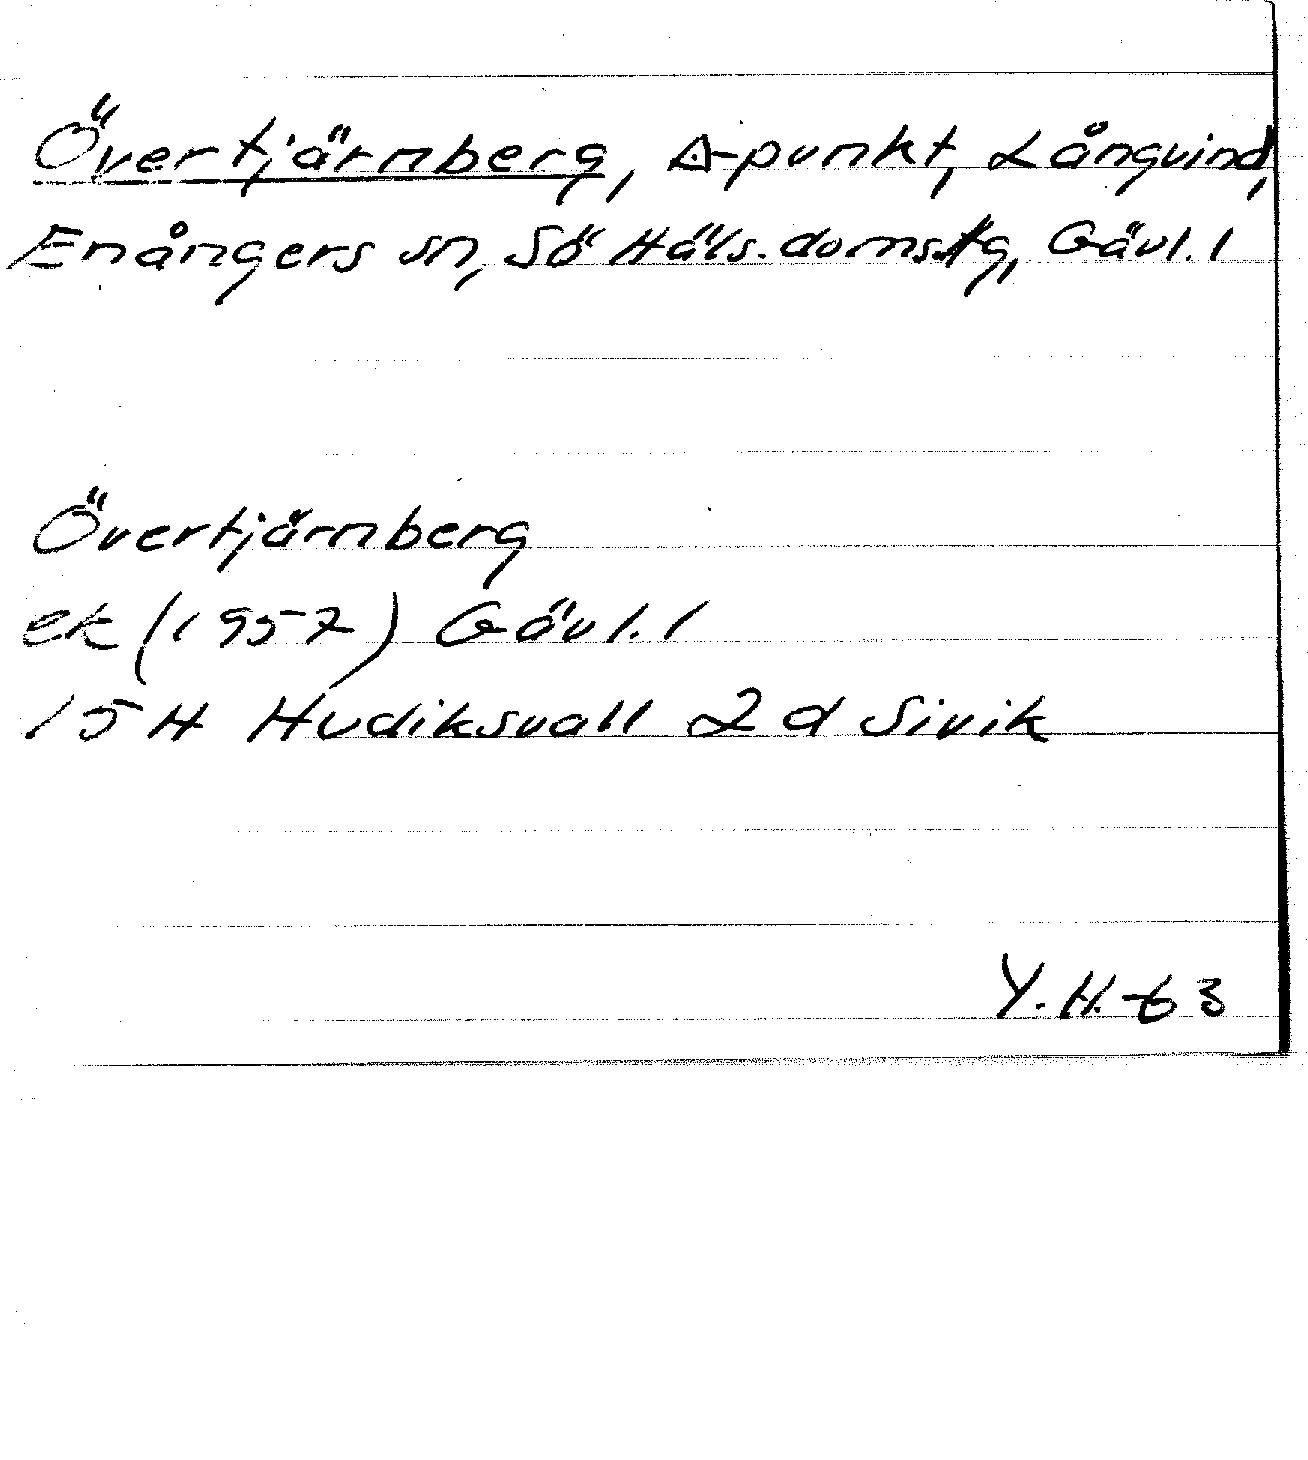 Övertjärnberg, △-punkt, Långvind,
Enångers sn, Sö Häls. doms.tg, Gävl. l
Övertjärnberg
ek (1957) Gävl. l
15 H Hudiksvall 2 d Sivik
Y. H. -63